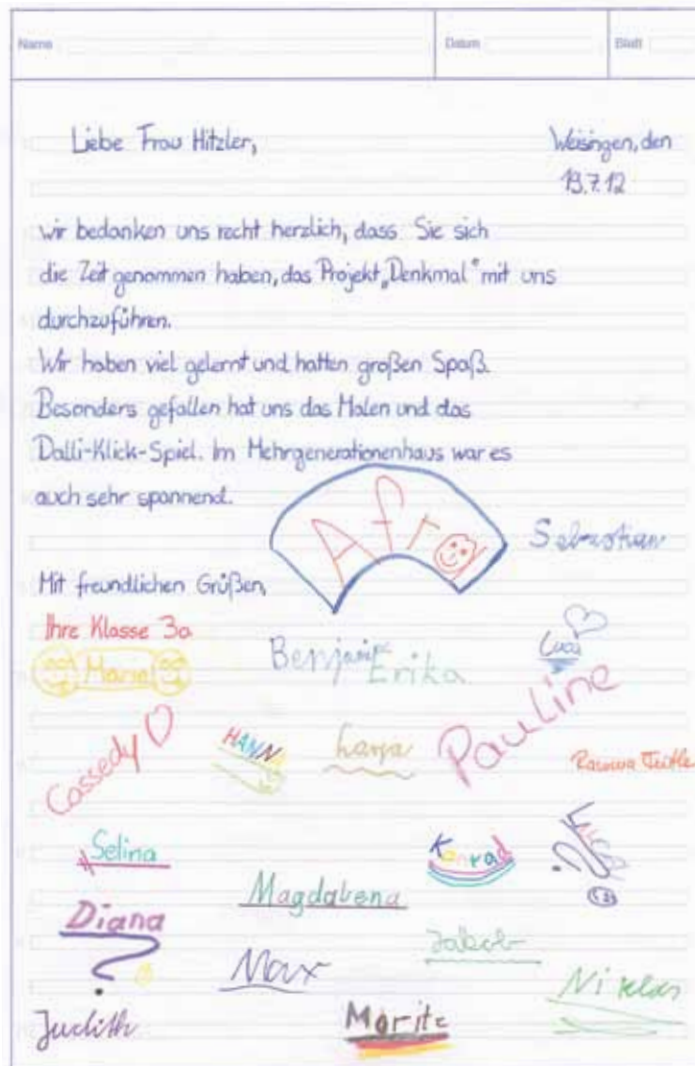 Name Datum Blatt
Liebe Frau Hitzler, Weisingen, den
19.7.12
wir bedanken uns recht herzlich, dass Sie sich
die Zeit genommen haben, das Projekt „Denkmal“ mit uns
durchzuführen.
Wir haben viel gelernt und hatten großen Spaß.
Besonders gefallen hat uns das Malen und das
Dalli-Klick-Spiel. Im Mehrgenerationenhaus war es
auch sehr spannend.
Afra Sebastian
Mit freundlichen Grüßen,
Ihre Klasse 3a
Marie Benjamin Erika Luca
Cassedy Pauline
Selina Konrad
Magdalena
Diana Jakob
Max Niklas
Judith Moritz